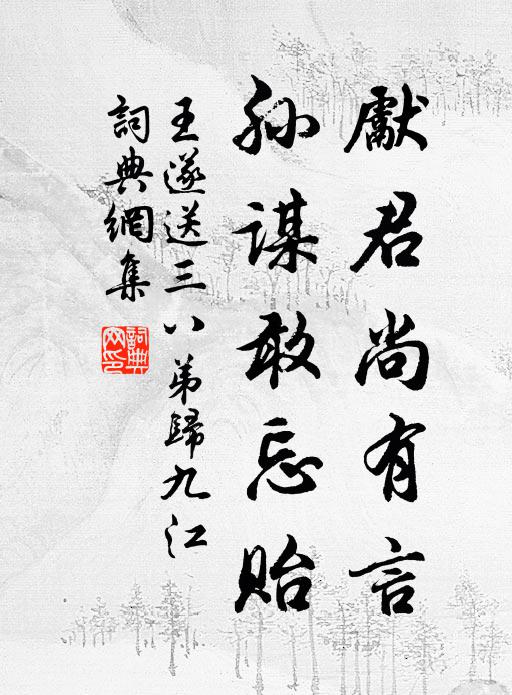 獻君尚有言
孙謀敢忘貽
王遂送三八弟歸九江
詞典網集
詞典网印